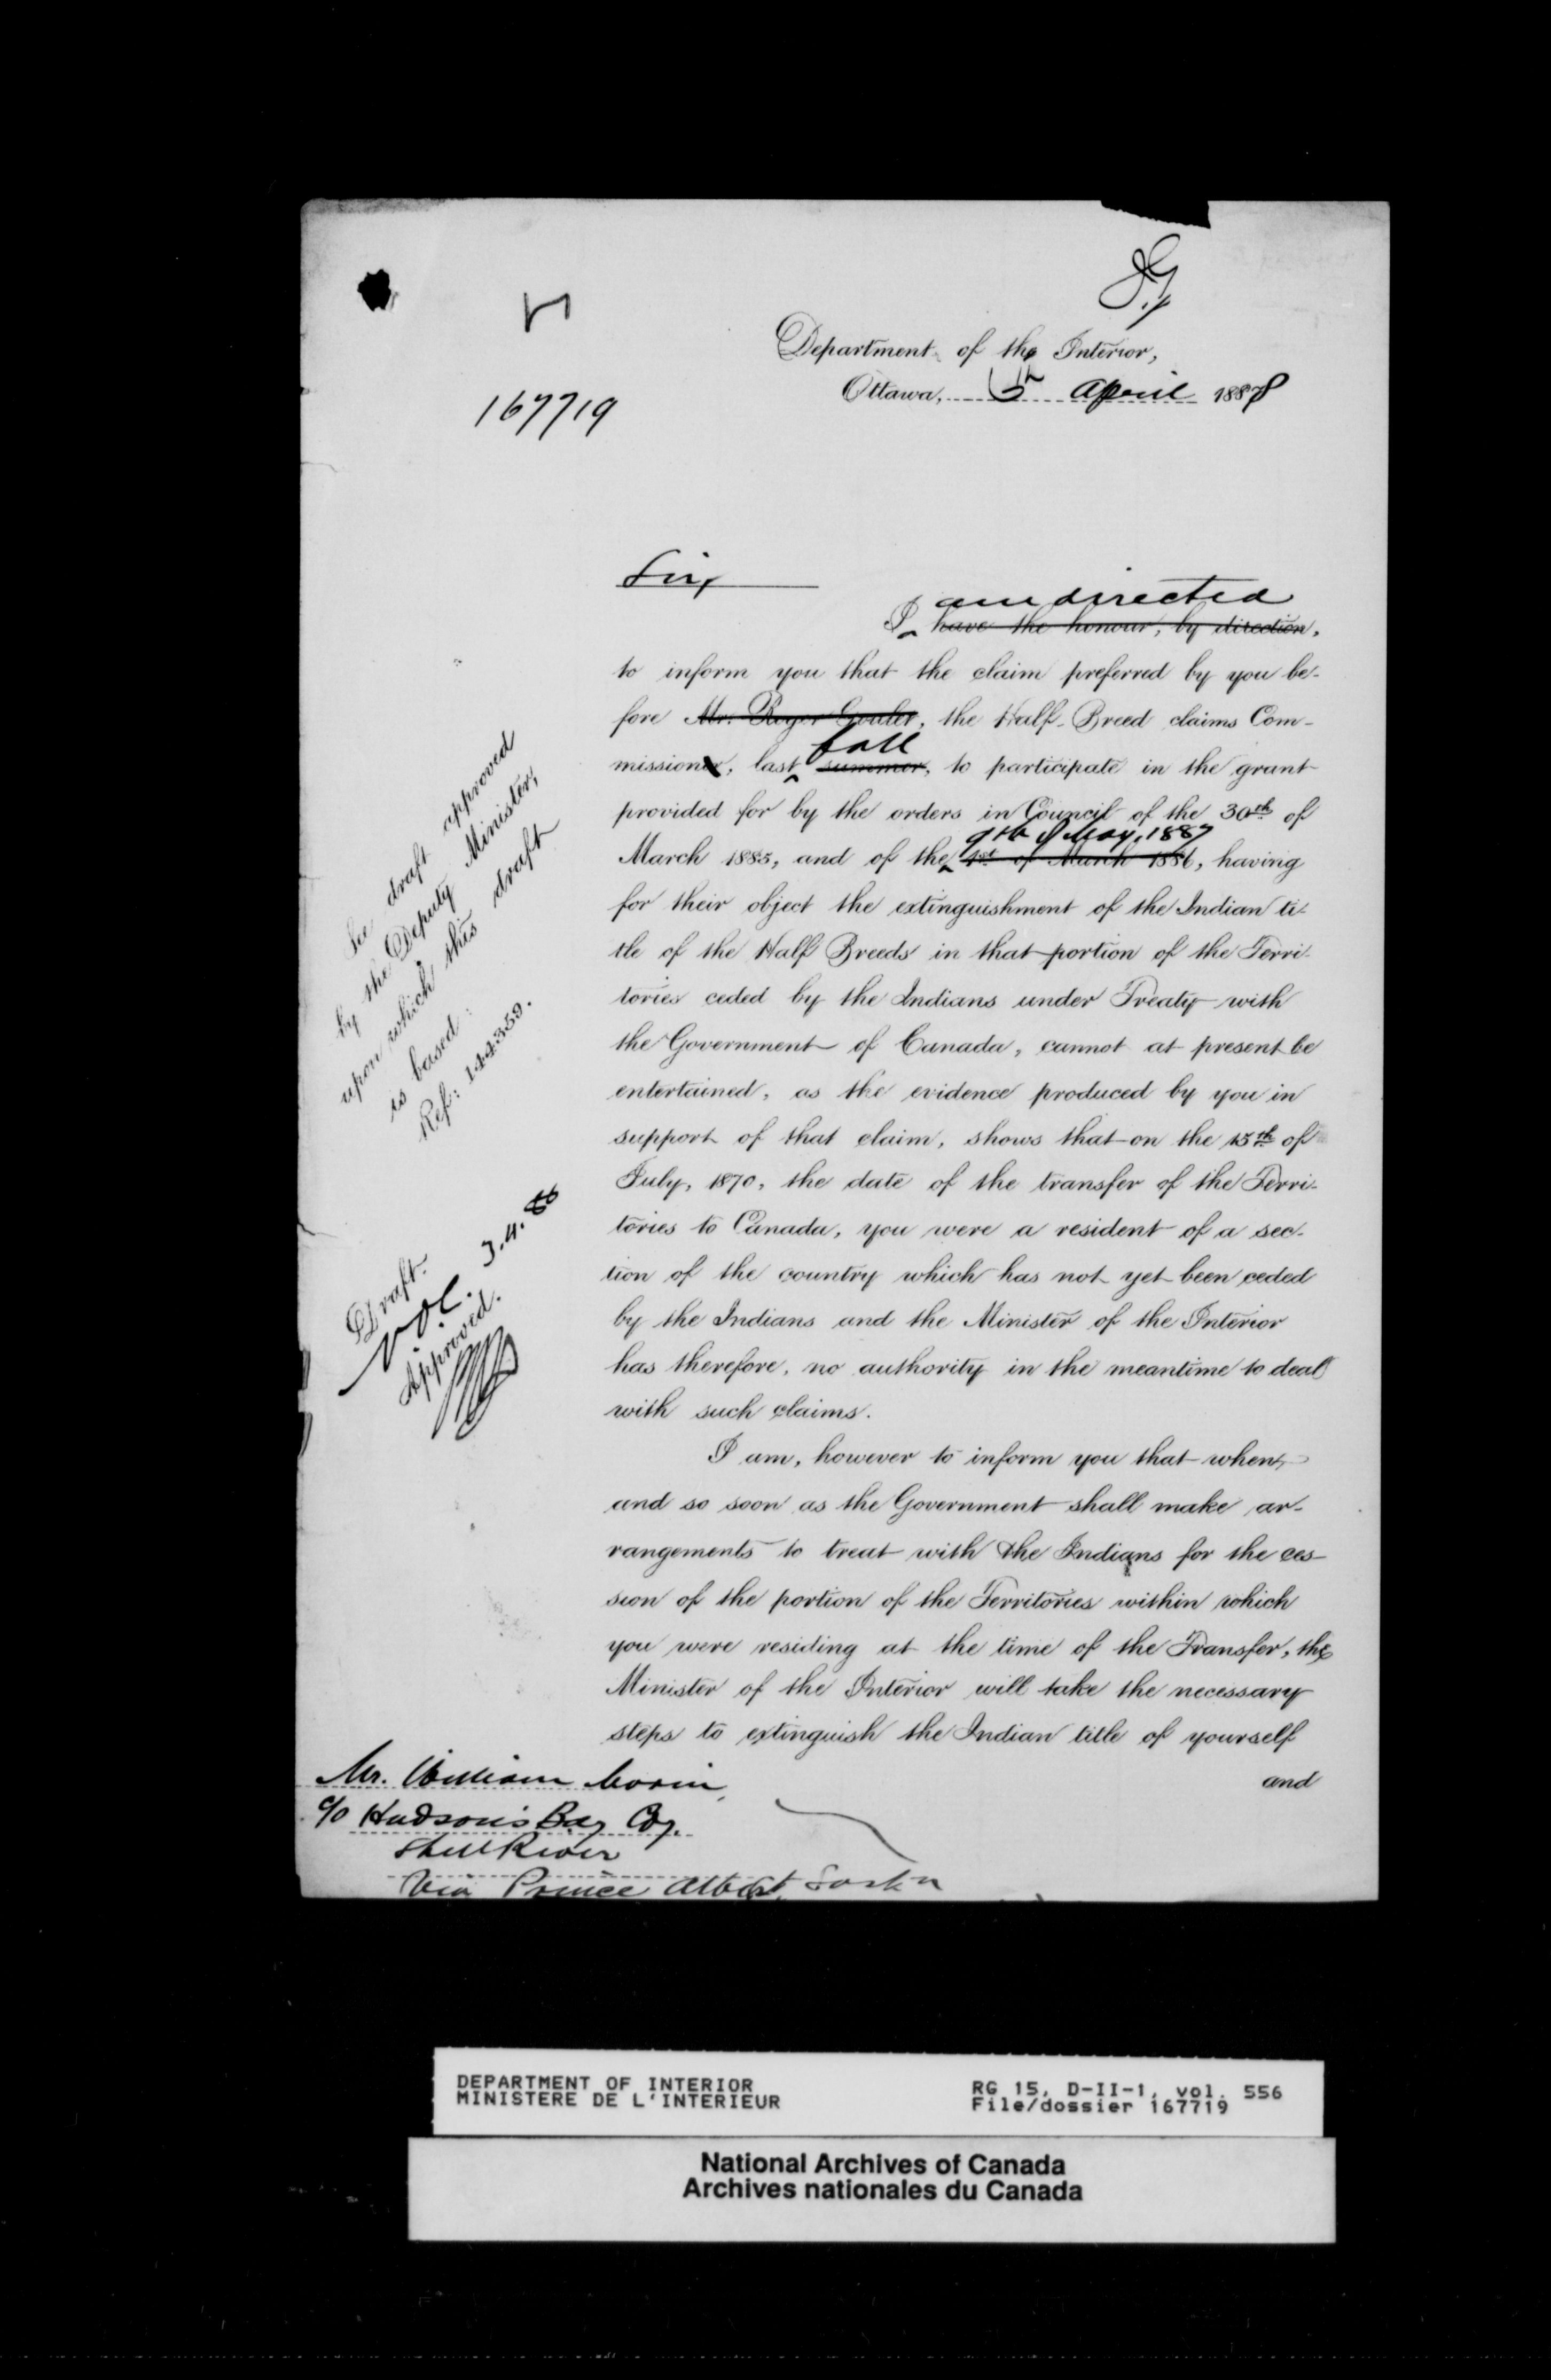 Department of the Interior,
Ottawa, 5th April 1888
167719
Sir,
am directed
I have the honour, by direction,
to inform you that the claim preferred by you be-
fore Mr. Roger Goulet, the Half-Breed claims Com-
fall
mission, last summer, to participate in the grant
provided for by the orders in Council of the 30th of
9th of May, 1887
March 1885, and of the 1st of March 1886, having
for their object the extinguishment of the Indian ti-
tle of the Half Breeds in that portion of the Terri-
tories ceded by the Indians under Treaty with
the Government of Canada, cannot at present be
entertained, as the evidence produced by you in
support of that claim, shows that on the 15th of
July, 1870, the date of the transfer of the Terri-
tories to Canada, you were a resident of a sec-
tion of the country which has not yet been ceded
by the Indians and the Minister of the Interior
has therefore, no authority in the meantime to deal
with such claims.
I am, however to inform you that when,
and so soon as the Government shall make ar-
rangements to treat with the Indians for the ces-
sion of the portion of the Territories within which
you were residing at the time of the Transfer, the
Minister of the Interior will take the necessary
steps to extinguish the Indian title of yourself
and
See draft approved
by the Deputy Minister,
upon which this draft
is based:
Ref: 144359.
Draft.
3.4.88
Approved.
Mr. William Morin,
c/o Hudson's Bay Coy.
Shell River
Via Prince Albert, Sask'n
DEPARTMENT OF INTERIOR
MINISTERE DE L'INTERIEUR
RG 15, D-II-1, vol. 556
File/dossier 167719
National Archives of Canada
Archives nationales du Canada